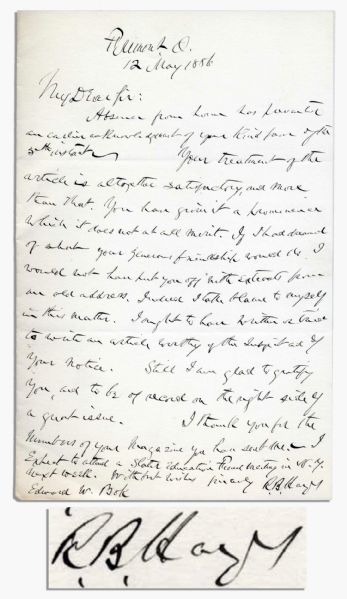 Fremont O.
12 May 1886
My Dear Sir:
Absence from home has prevented
an earlier acknowledgment of your kind favor of the
5th instant. Your treatment of the
article is altogether satisfactory and more
than that. You have given it a prominence
which it does not at all merit. If I had dreamed
of what your generous friendship would do, I
would not have put you off with extracts from
an old address. Indeed I take blame to myself
in this matter. I ought to have written or tried
to write an article worthy of the
your notice. Still I am glad to gratify
you, and to be of record on the right side of
a great issue. I thank you for the
numbers of your Magazine you have sent me. I
expect to attend a Slater Education Fund meeting in N.Y.
next week. Sincerely R.B. Hayes
Edward W. Bok
R.B. Hayes